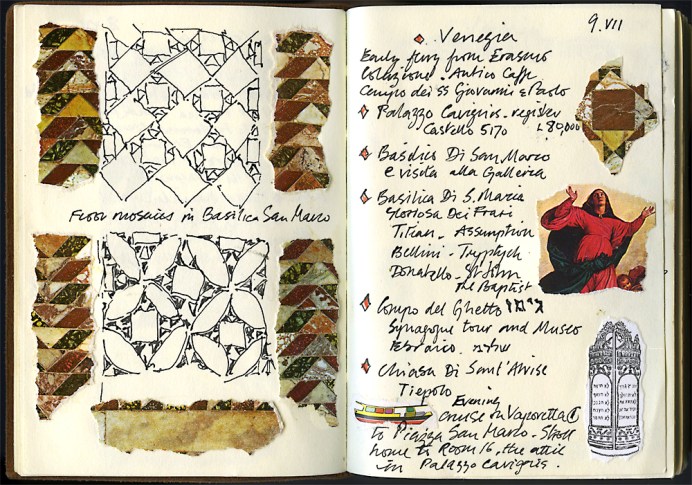 Floor mosaics in Basilica San Marco
9.VII
Venezia
Early ferry from Erasmo
Colazione - Antico Caffe
Campo dei SS Giovanni e Paolo
Palazzo Cavignis - register
Castello 5170 £80,000
Basilica Di San Marco
e visita alla Galleria
Basilica Di S. Maria
Gloriosa Dei Frari
Titian - Assumption
Bellini - Tryptych
Donatello - St John
the Baptist
Campo del Ghetto
Synagogue tour and Museo
Ebraico.
Chiesa Di Sant'Alvise
Tiepolo
Evening
cruise on Vaporetto ①
to Piazza San Marco. Stroll
home to Room 16, the attic
in Palazzo Cavignis.